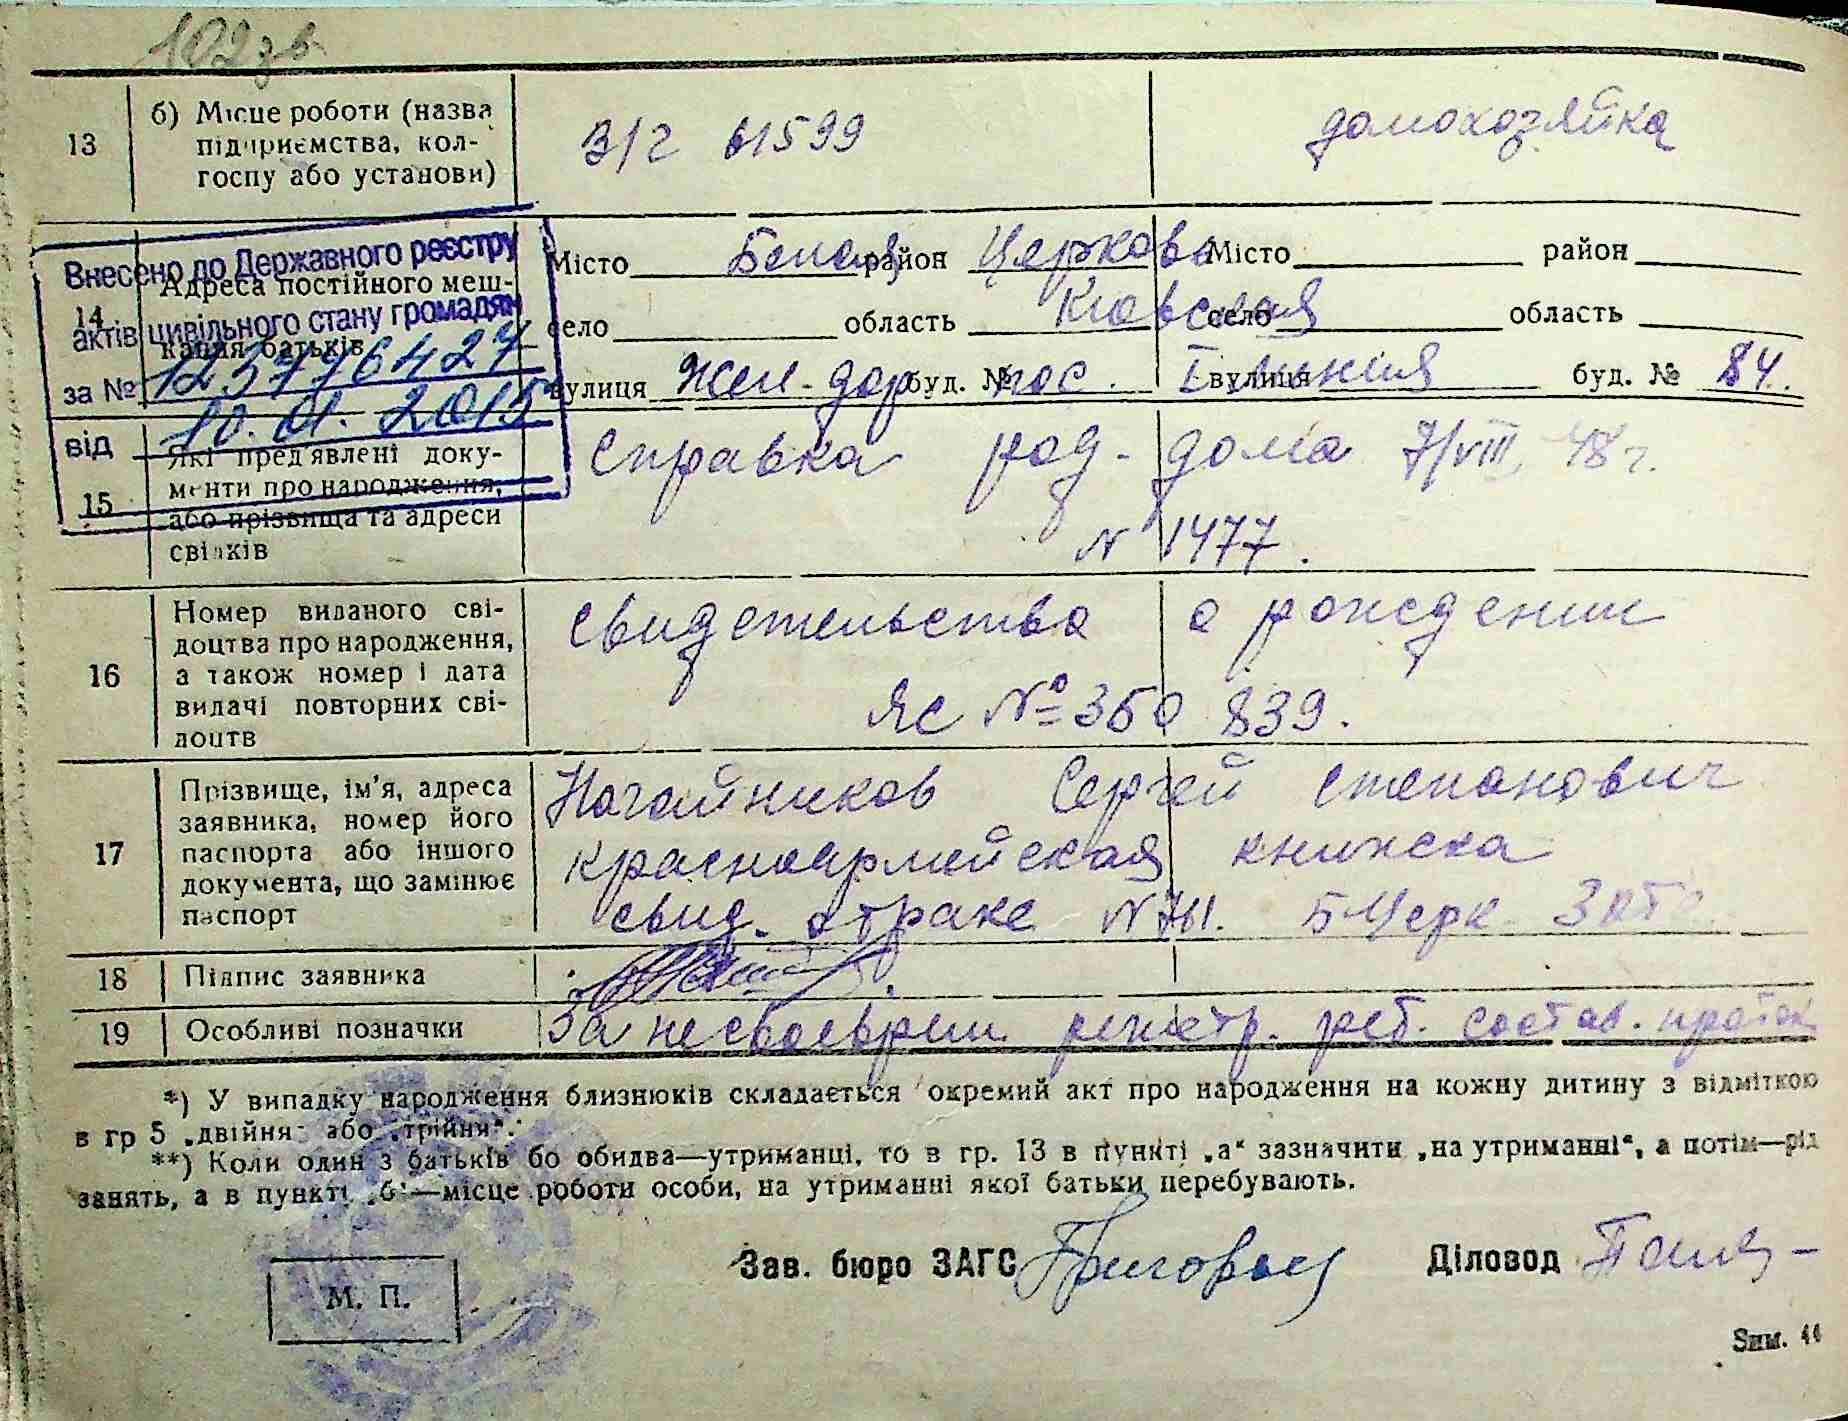 102 зв.
13 б) Місце роботи (назва підприємства, колгоспу або установи)
В/г 61599
домохозяйка
Внесено до Державного реєстру
актів цивільного стану громадян
за № 12376427
від 10.01.2015
14 Адреса постійного мешкання батьків
Місто Белая район Церковь Місто район
село область Киевская село область
вулиця Жел-дор буд. № пос. I линия вулиця буд. № 84.
15 Які пред'явлені документи про народження, або прізвища та адреси свідків
Справка род-дома 7/VIII 48 г.
N 1477.
16 Номер виданого свідоцтва про народження, а також номер і дата видачі повторних свідоцтв
свидетельство о рождении
ЯС № 350 839.
17 Прізвище, ім'я, адреса заявника, номер його паспорта або іншого документа, що замінює паспорт
Нагайников Сергей Степанович
красноармейская книжка
свид. о браке N 741. БЦерк. ЗАГС
18 Підпис заявника
19 Особливі позначки
За несвоеврем. регистр. реб. состав. проток.
*) У випадку народження близнюків складається окремий акт про народження на кожну дитину з відміткою
в гр 5 „двійня" або „трійня".
**) Коли один з батьків бо обидва—утриманці, то в гр. 13 в пункті „а" зазначити „на утриманні", а потім—рід
занять, а в пункті „б"—місце роботи особи, на утриманні якої батьки перебувають.
Зав. бюро ЗАГС
Діловод
М. П.
Зим.